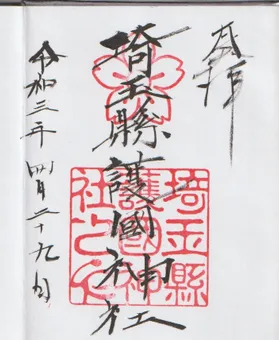 奉拝
埼玉縣護國神社
埼玉縣
護國神
社之印
令和三年四月二十九日